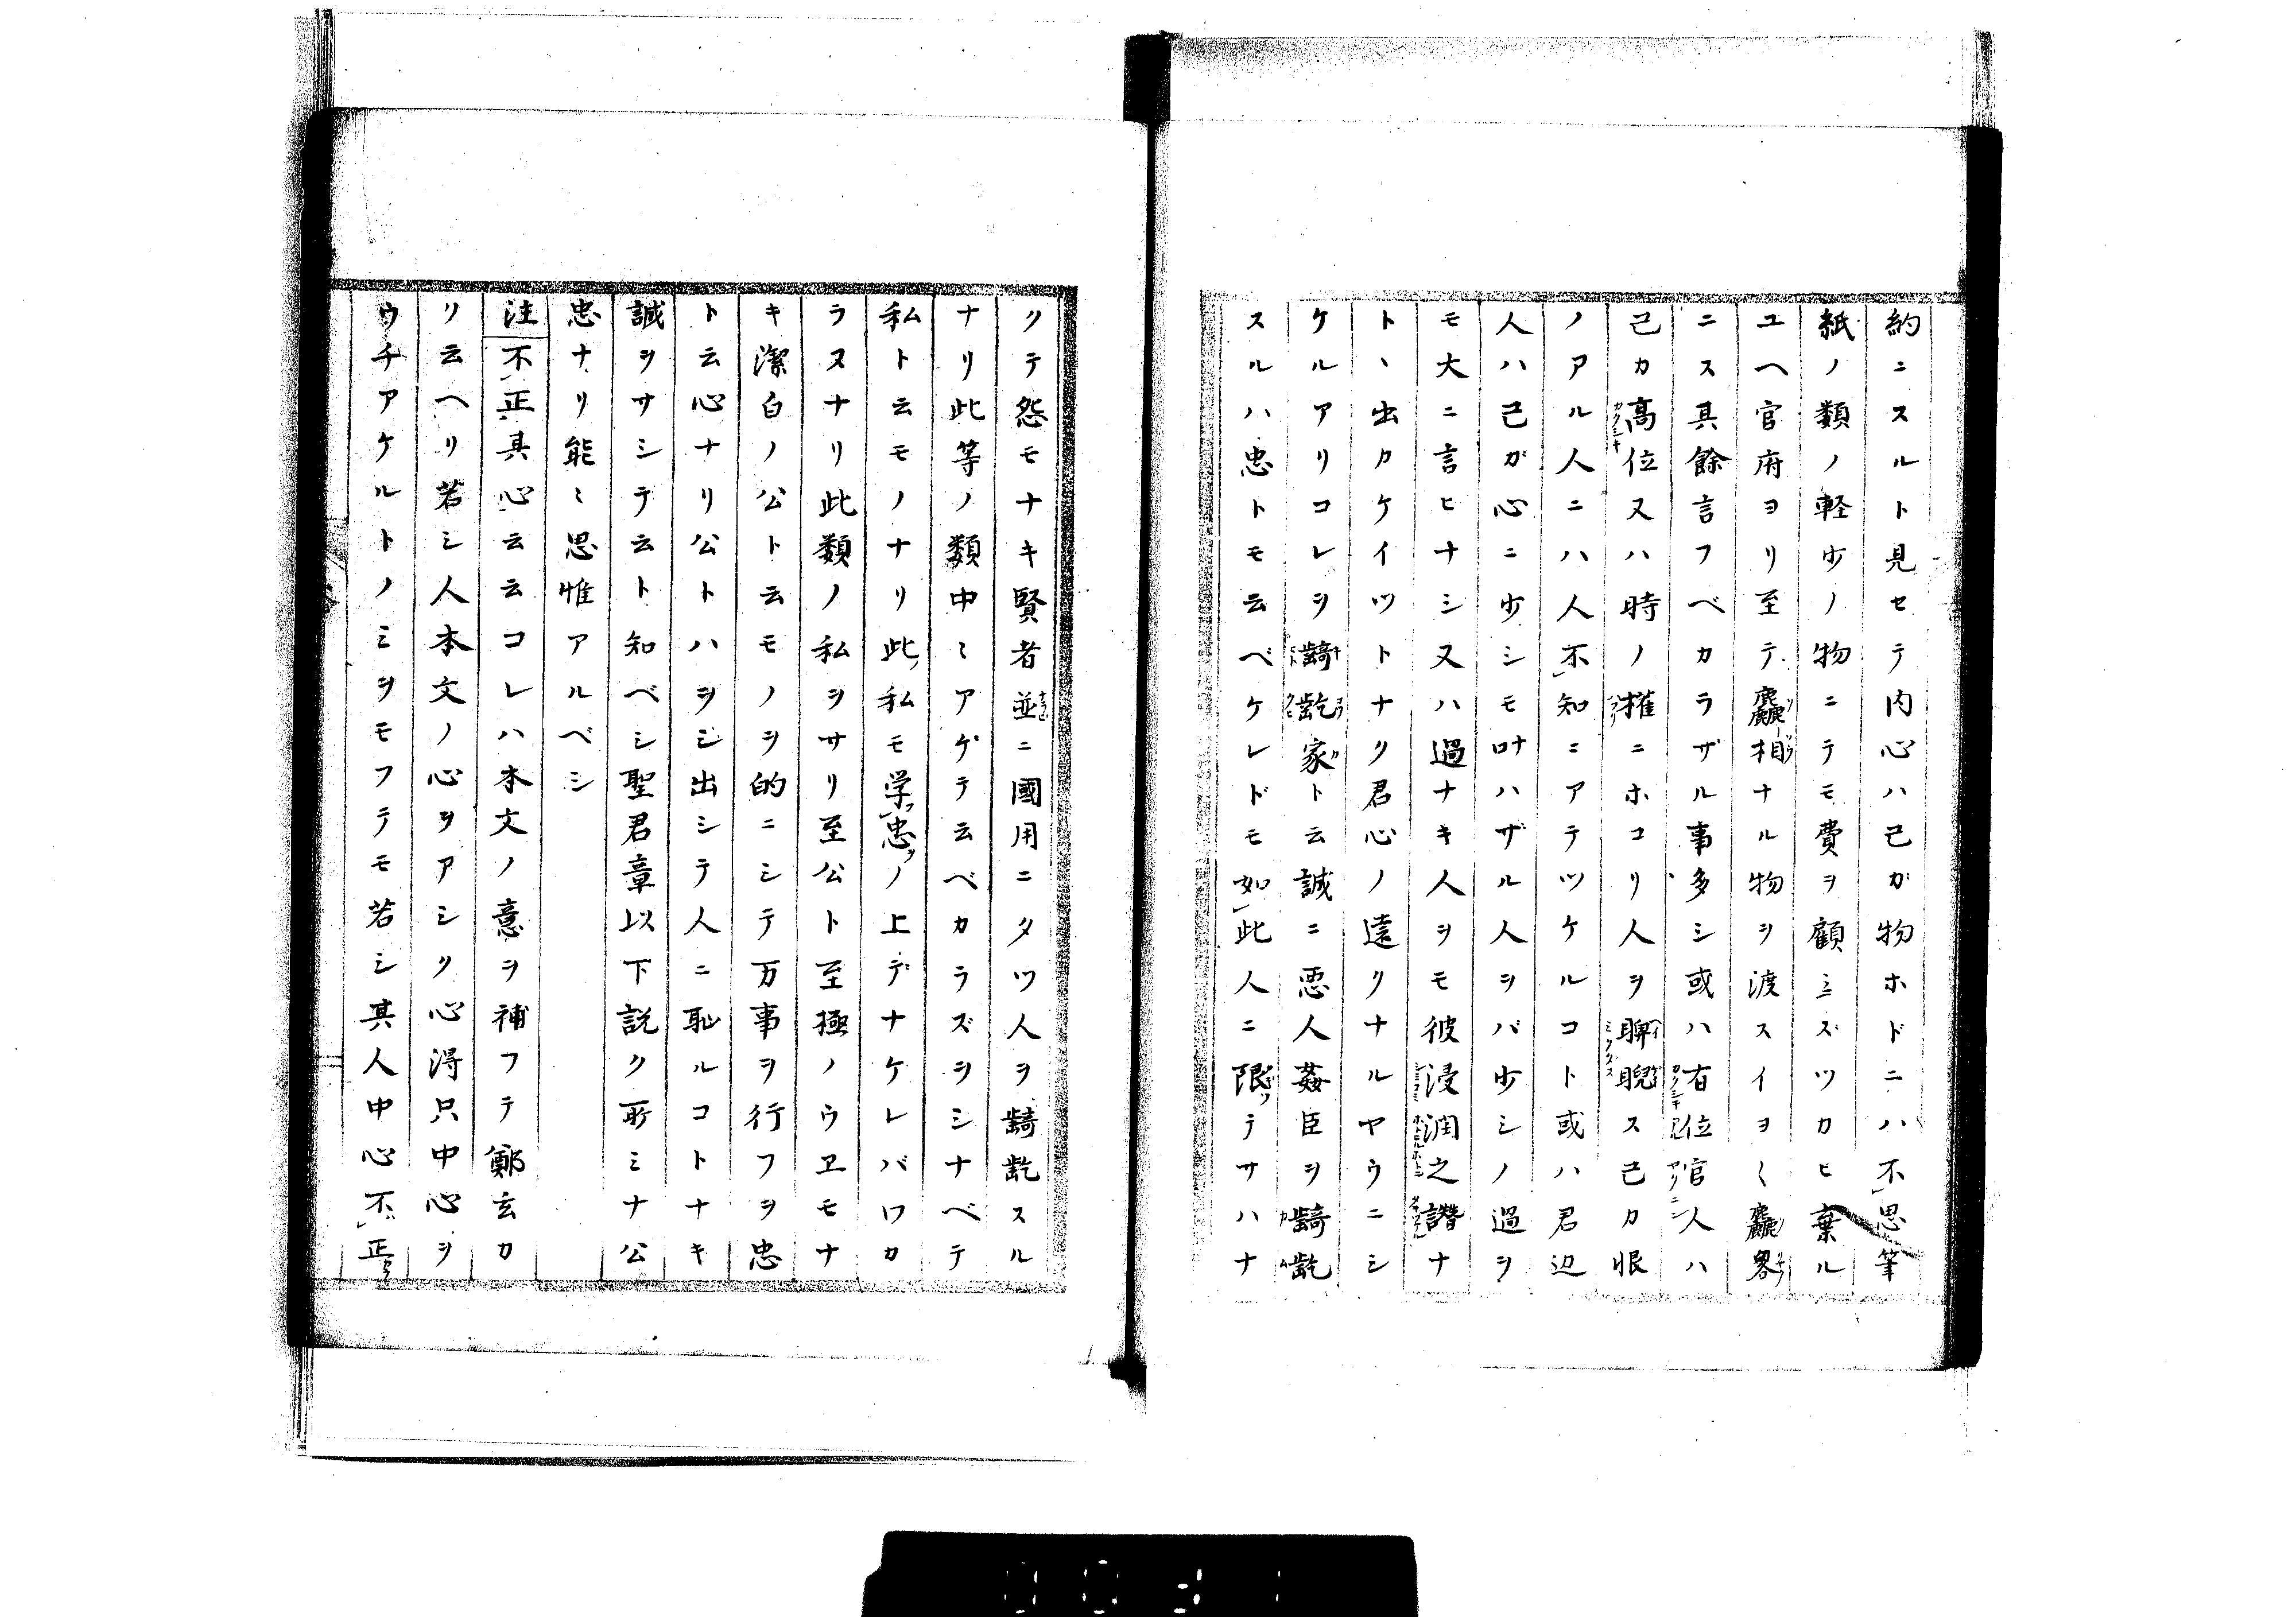 約ニスルト見セテ内心ハ己ガ物ホドニハ不思筆
紙ノ類ノ軽少ノ物ニテモ費ヲ顧ミズツカヒ棄ル
ユヘ官府ヨリ至テ麤相ナル物ヲ渡スイヨ〱麤畧
ニス其餘言フベカラザル事多シ或ハ有位官人ハ
己カ高位又ハ時ノ権ニホコリ人ヲ睥睨ス己カ恨
ノアル人ニハ人不知ニアテツケルコト或ハ君辺
人ハ己ガ心ニ少シモ叶ハザル人ヲバ少シノ過ヲ
モ大ニ言ヒナシ又ハ過ナキ人ヲモ彼浸潤之譛ナ
ト丶出カケイツトナク君心ノ遠クナルヤウニシ
ケルアリコレヲ齮齕家ト云誠ニ悪人姦臣ヲ齮齕
スルハ忠トモ云ベケレドモ如此人ニ限テサハナ
クテ怨モナキ賢者並ニ國用ニタツ人ヲ齮齕スル
ナリ此等ノ類中〻アゲテ云ベカラズヲシナベテ
私ト云モノナリ此私モ学忠ノ上デナケレバワカ
ラヌナリ此類ノ私ヲサリ至公ト至極ノウヱモナ
キ潔白ノ公ト云モノヲ的ニシテ万事ヲ行フヲ忠
ト云心ナリ公トハヲシ出シテ人ニ恥ルコトナキ
誠ヲサシテ云ト知ベシ聖君章以下説ク所ミナ公
忠ナリ能〻思惟アルベシ
注不正其心云云コレハ本文ノ意ヲ補フテ鄭玄カ
リ云ヘリ若シ人本文ノ心ヲアシク心得只中心ヲ
ウチアケルトノミヲモフテモ若シ其人中心不正